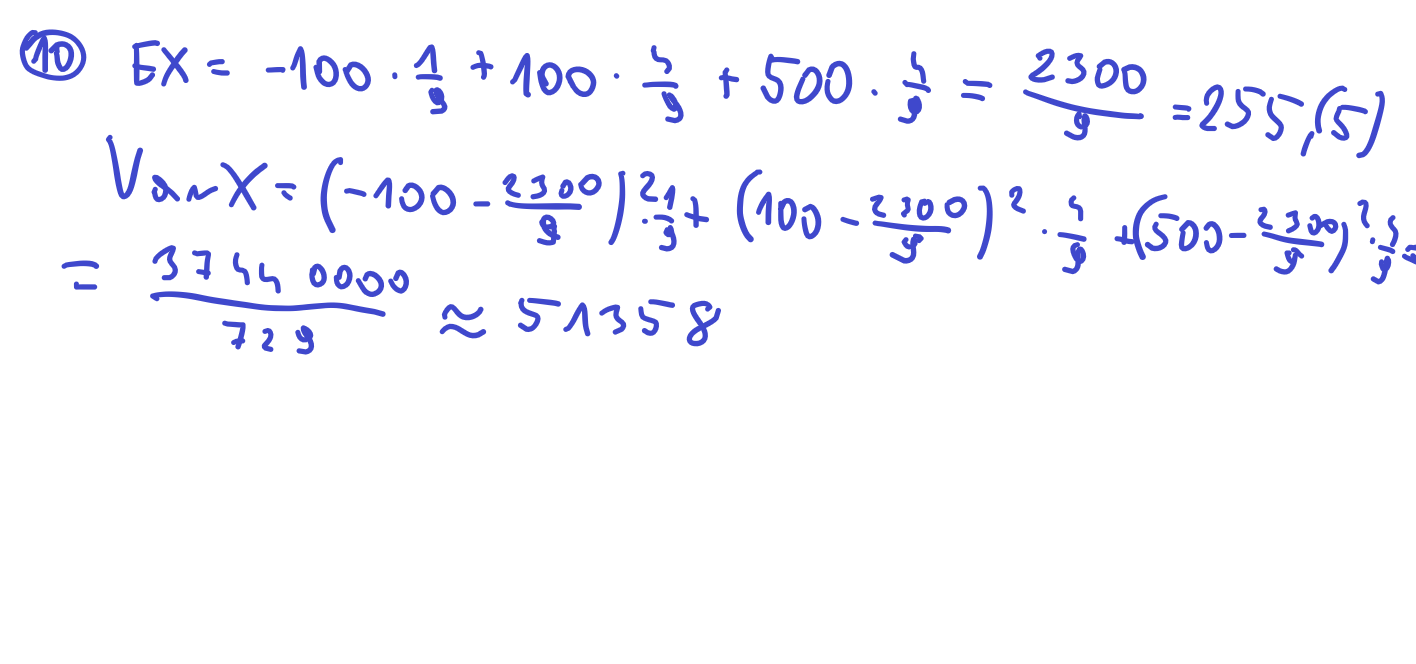 10 EX = -100 · 1/9 + 100 · 4/9 + 500 · 4/9 = 2300/9 = 255,(5)
VarX = (-100 - 2300/9)² · 1/9 + (100 - 2300/9)² · 4/9 + (500 - 2300/9)² · 4/9 =
= 37440000/729 ≈ 51358